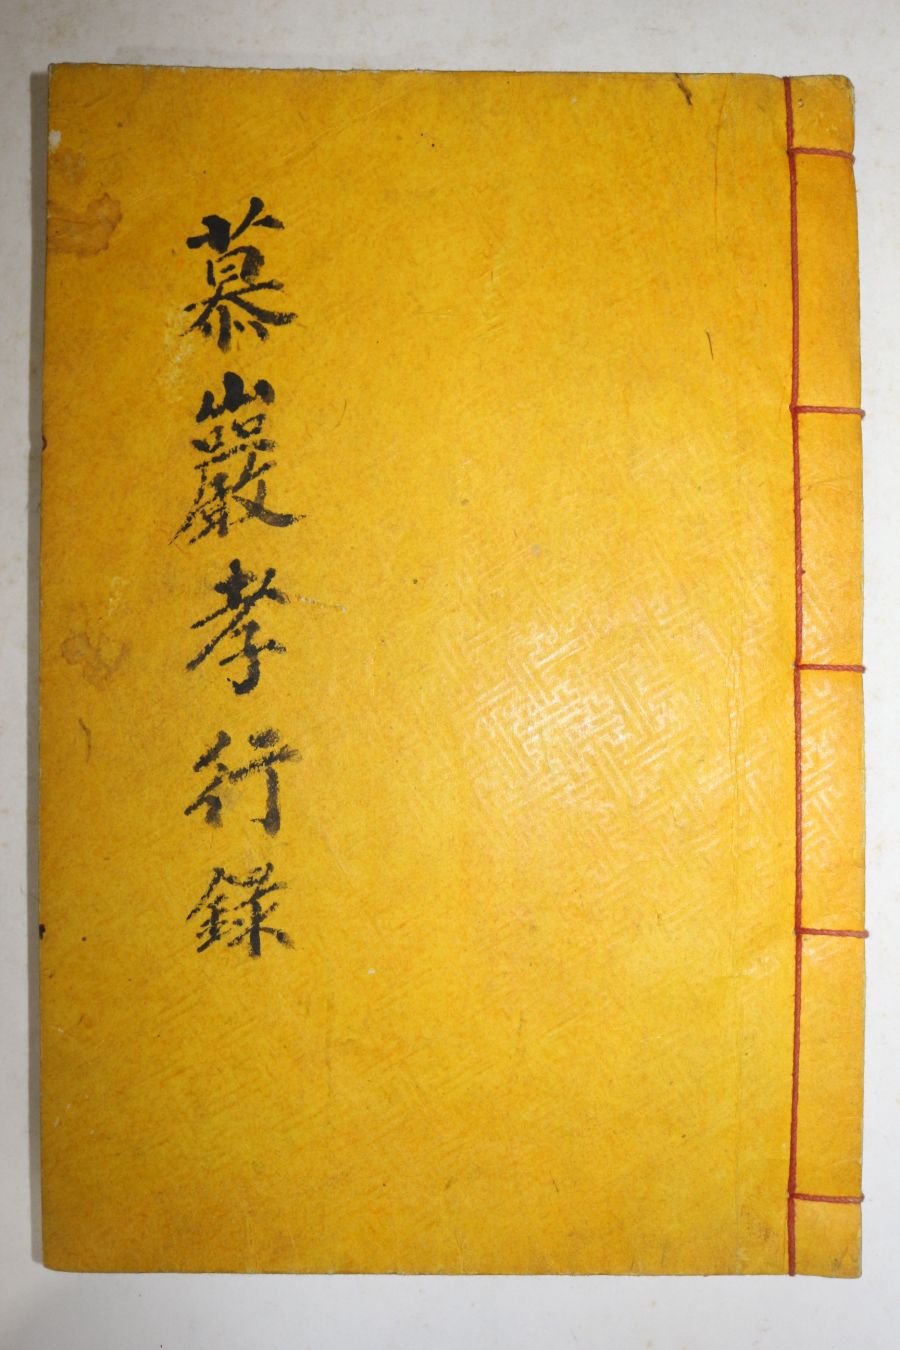 慕巖孝行錄